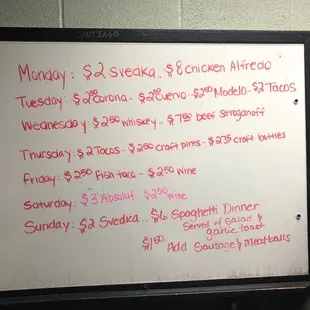 Monday: $2 Sveaka.. $8 Chicken Alfredo
Tuesday: $2⁰⁰ Corona.. $2⁵⁰ Cuervo.. $2⁵⁰ Modelo.. $2 Tacos
Wednesday: $2⁵⁰ Whiskey.. $7⁵⁰ beef Stroganoff
Thursday: $2 Tacos.. $2⁵⁰ craft pints.. $2⁷⁵ craft bottles
Friday: $2⁵⁰ Fish taco - $2⁵⁰ Wine
Saturday: $3 Absolut.. $2⁵⁰ Wine
Sunday: $2 Svedka.. $6 Spaghetti Dinner
Served w/ salad &
garlic toast
$1⁵⁰ Add Sausage & meatballs